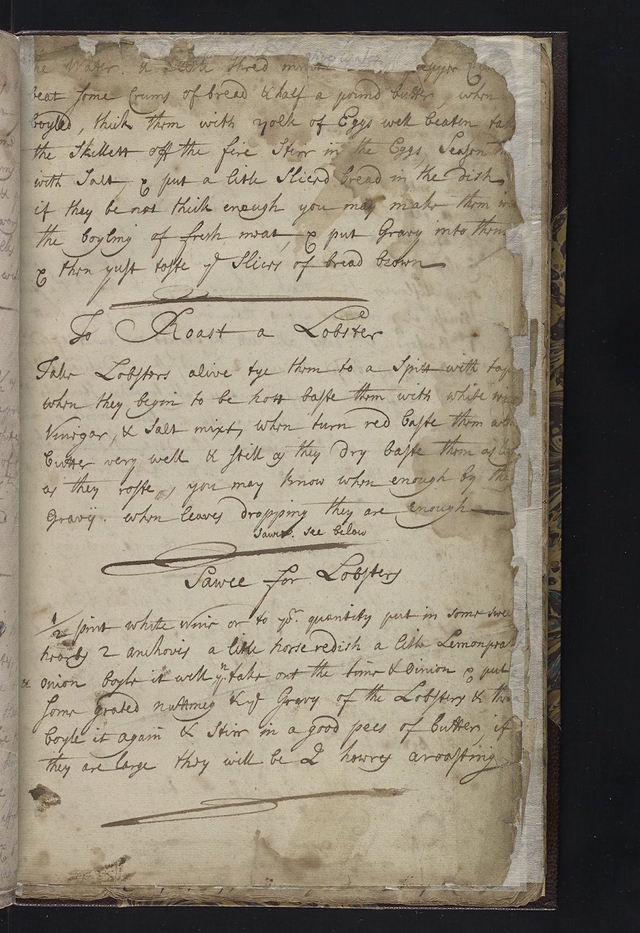 Water. & a little shred
beat some Crums of bread & half a pound butter, when
boyled, thick them with yolk of Eggs well beaten
the Skillett off the fire Stirr in the Eggs, Season
with Salt, & put a litle Sliced bread in the dish
if they be not thick enough you may make them in
the boyling of fresh meat, & put Gravy into them
& then just toste ye Slices of bread brown
To Roast a Lobster
Take Lobsters alive tye them to a Spitt with
when they begin to be hott baste them with white
Vinegar, & Salt mixt, when turn red baste them with
butter very well & still as they dry baste them
as they roste, you may know when enough by the
Gravy. when leaves dropping they are enough
sawce. see below
Sawce for Lobsters
1/2 pint white wine or to yor. quantity put in some
2 anchovis a litle horse redish a litle
onion boyle it well yn take out the & Onion & put
some grated nuttmeg & ye Gravy of the Lobsters &
boyle it again & Stirr in a good pees of butter, if
they are large they will be 2 howres aroasting